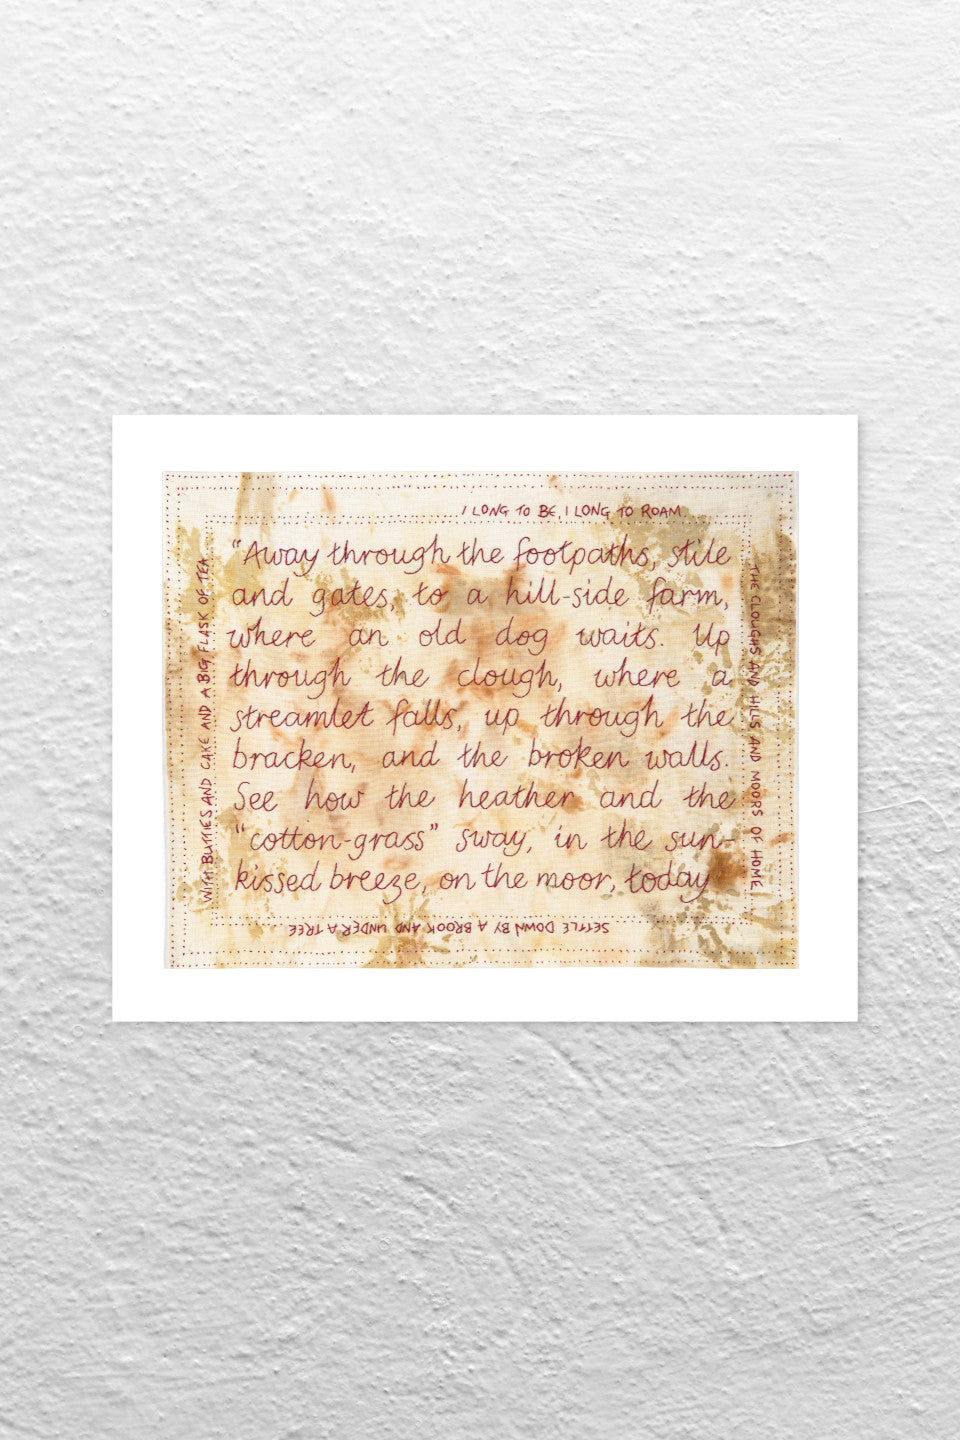 I LONG TO BE, I LONG TO ROAM
THE CLOUGHS AND HILLS AND MOORS OF HOME
SETTLE DOWN BY A BROOK AND UNDER A TREE
WITH BUTTIES AND CAKE AND A BIG FLASK OF TEA
“Away through the footpaths, stile
and gates, to a hill-side farm,
where an old dog waits. Up
through the clough, where a
streamlet falls, up through the
bracken, and the broken walls.
See how the heather and the
“cotton-grass” sway, in the sun-
kissed breeze, on the moor, today